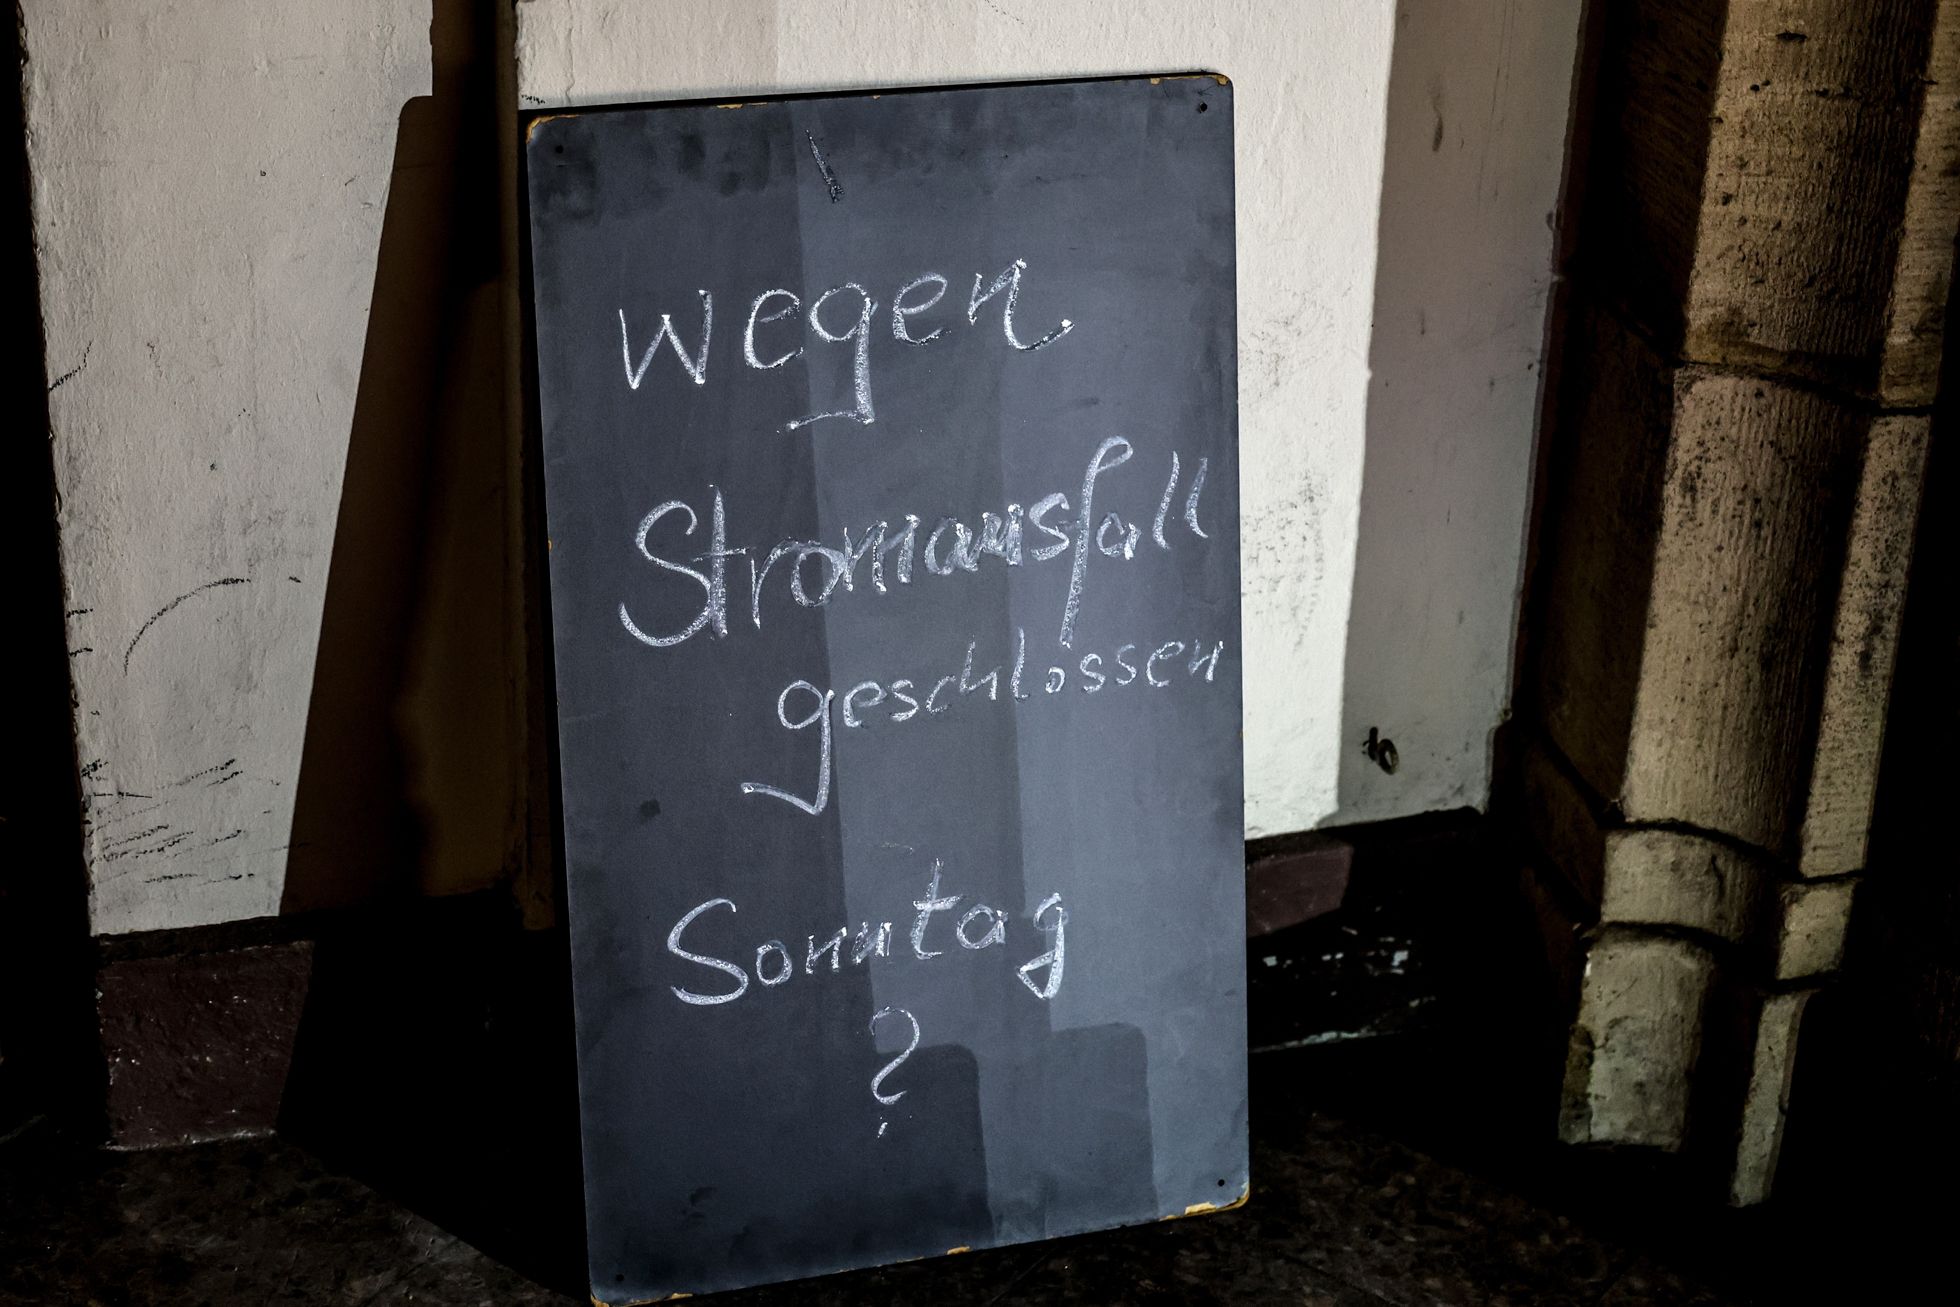 wegen
Stromausfall
geschlossen
Sonntag
?